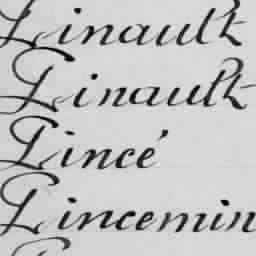 Linault
Linault
Lincé
Lincemin